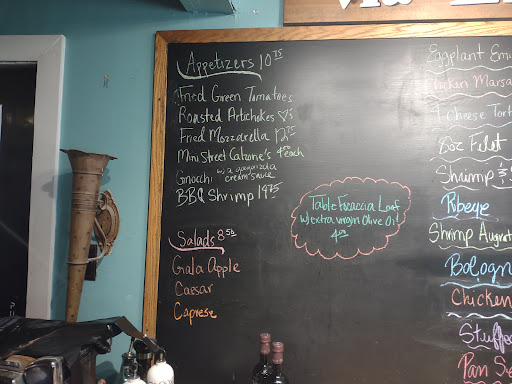 Appetizers 10 75
Fried Green Tomatoes
Roasted Artichokes
Fried Mozzarella 12 75
Mini Street Calzone's each
Gnocchi w/ a gorgonzola
cream sauce
BBQ Shrimp 14 75
Salads 8 50
Gala Apple
Caesar
Caprese
Table Focaccia Loaf
w/ extra virgin Olive Oil
Eggplant
Chicken Marsa
Cheese Tort
8oz Filet
Shrimp
Ribeye
Shrimp
Bologn
Chicken
Stuffe
Pan Se